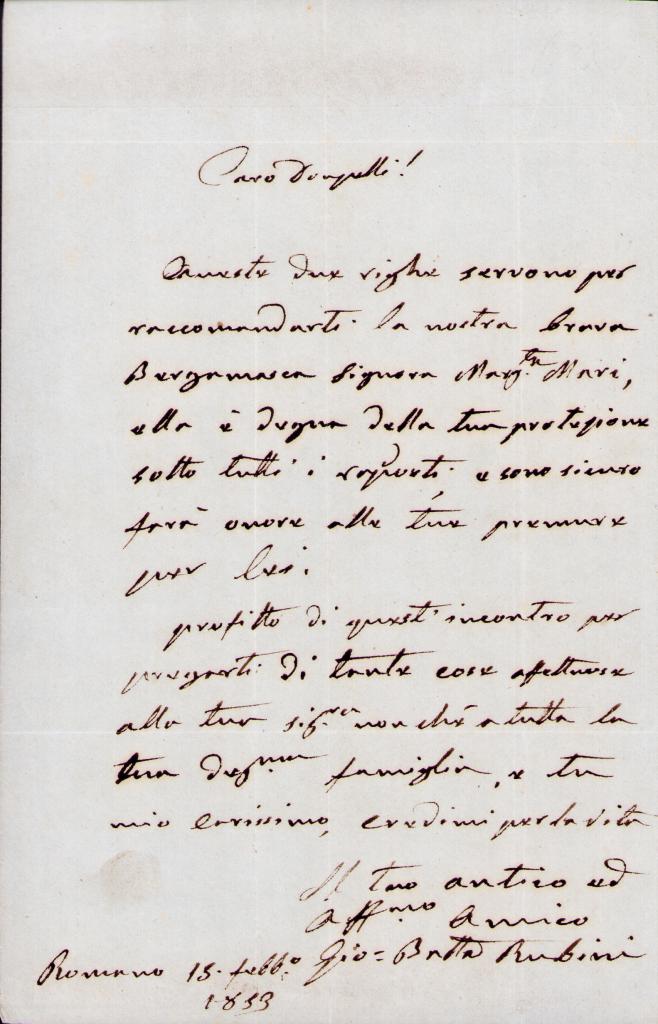 Caro Donzelli!
Queste due righe servono per
raccomandarti la nostra brava
Bergamasca Signora Marg.ta Mari,
ella è degna della tua protezione
sotto tutti i rapporti, e sono sicuro
farà onore alle tue premure
per lei.
profitto di quest'incontro per
pregarti di tante cose affettuose
alla tua sig.ra non chè a tutta la
tua degnma famiglia, e tu
mio carissimo, credimi per la vita
Il tuo antico ed
Affmo Amico
Gio= Batta Rubini
Romano 15. febb.o
1853